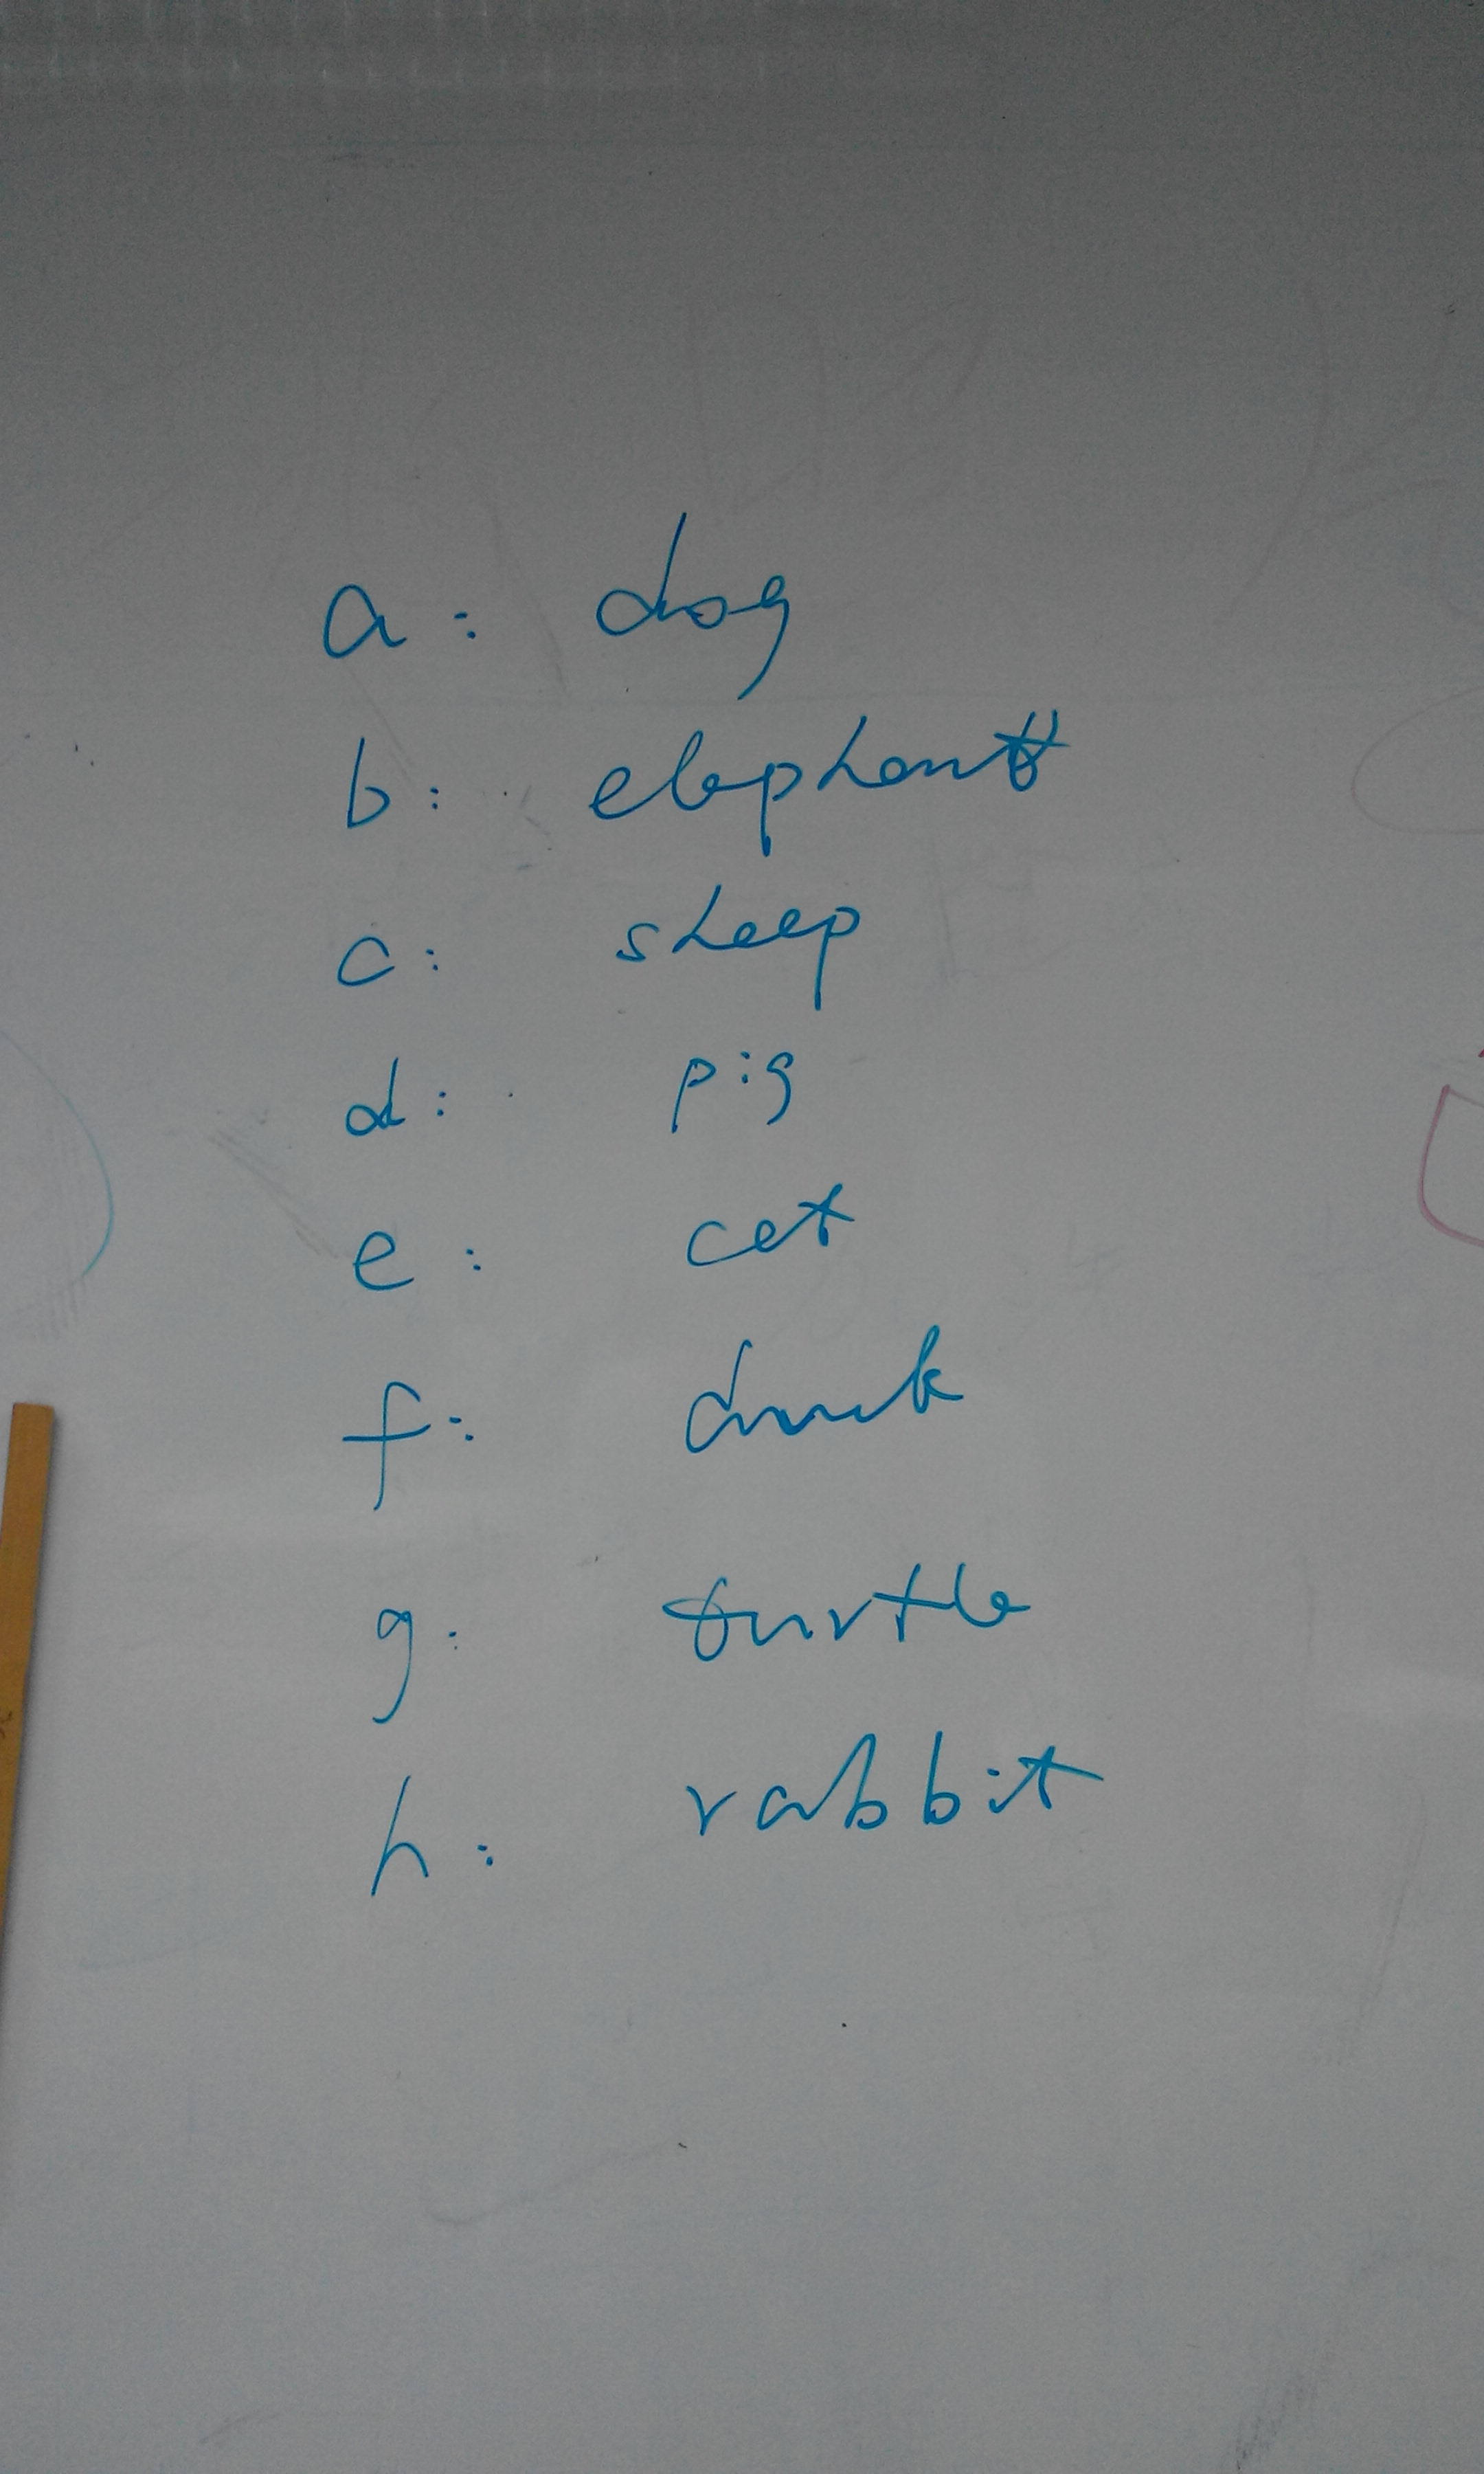 a: dog
b: elephant
c: sheep
d: pig
e: cat
f: duck
g: turtle
h: rabbit